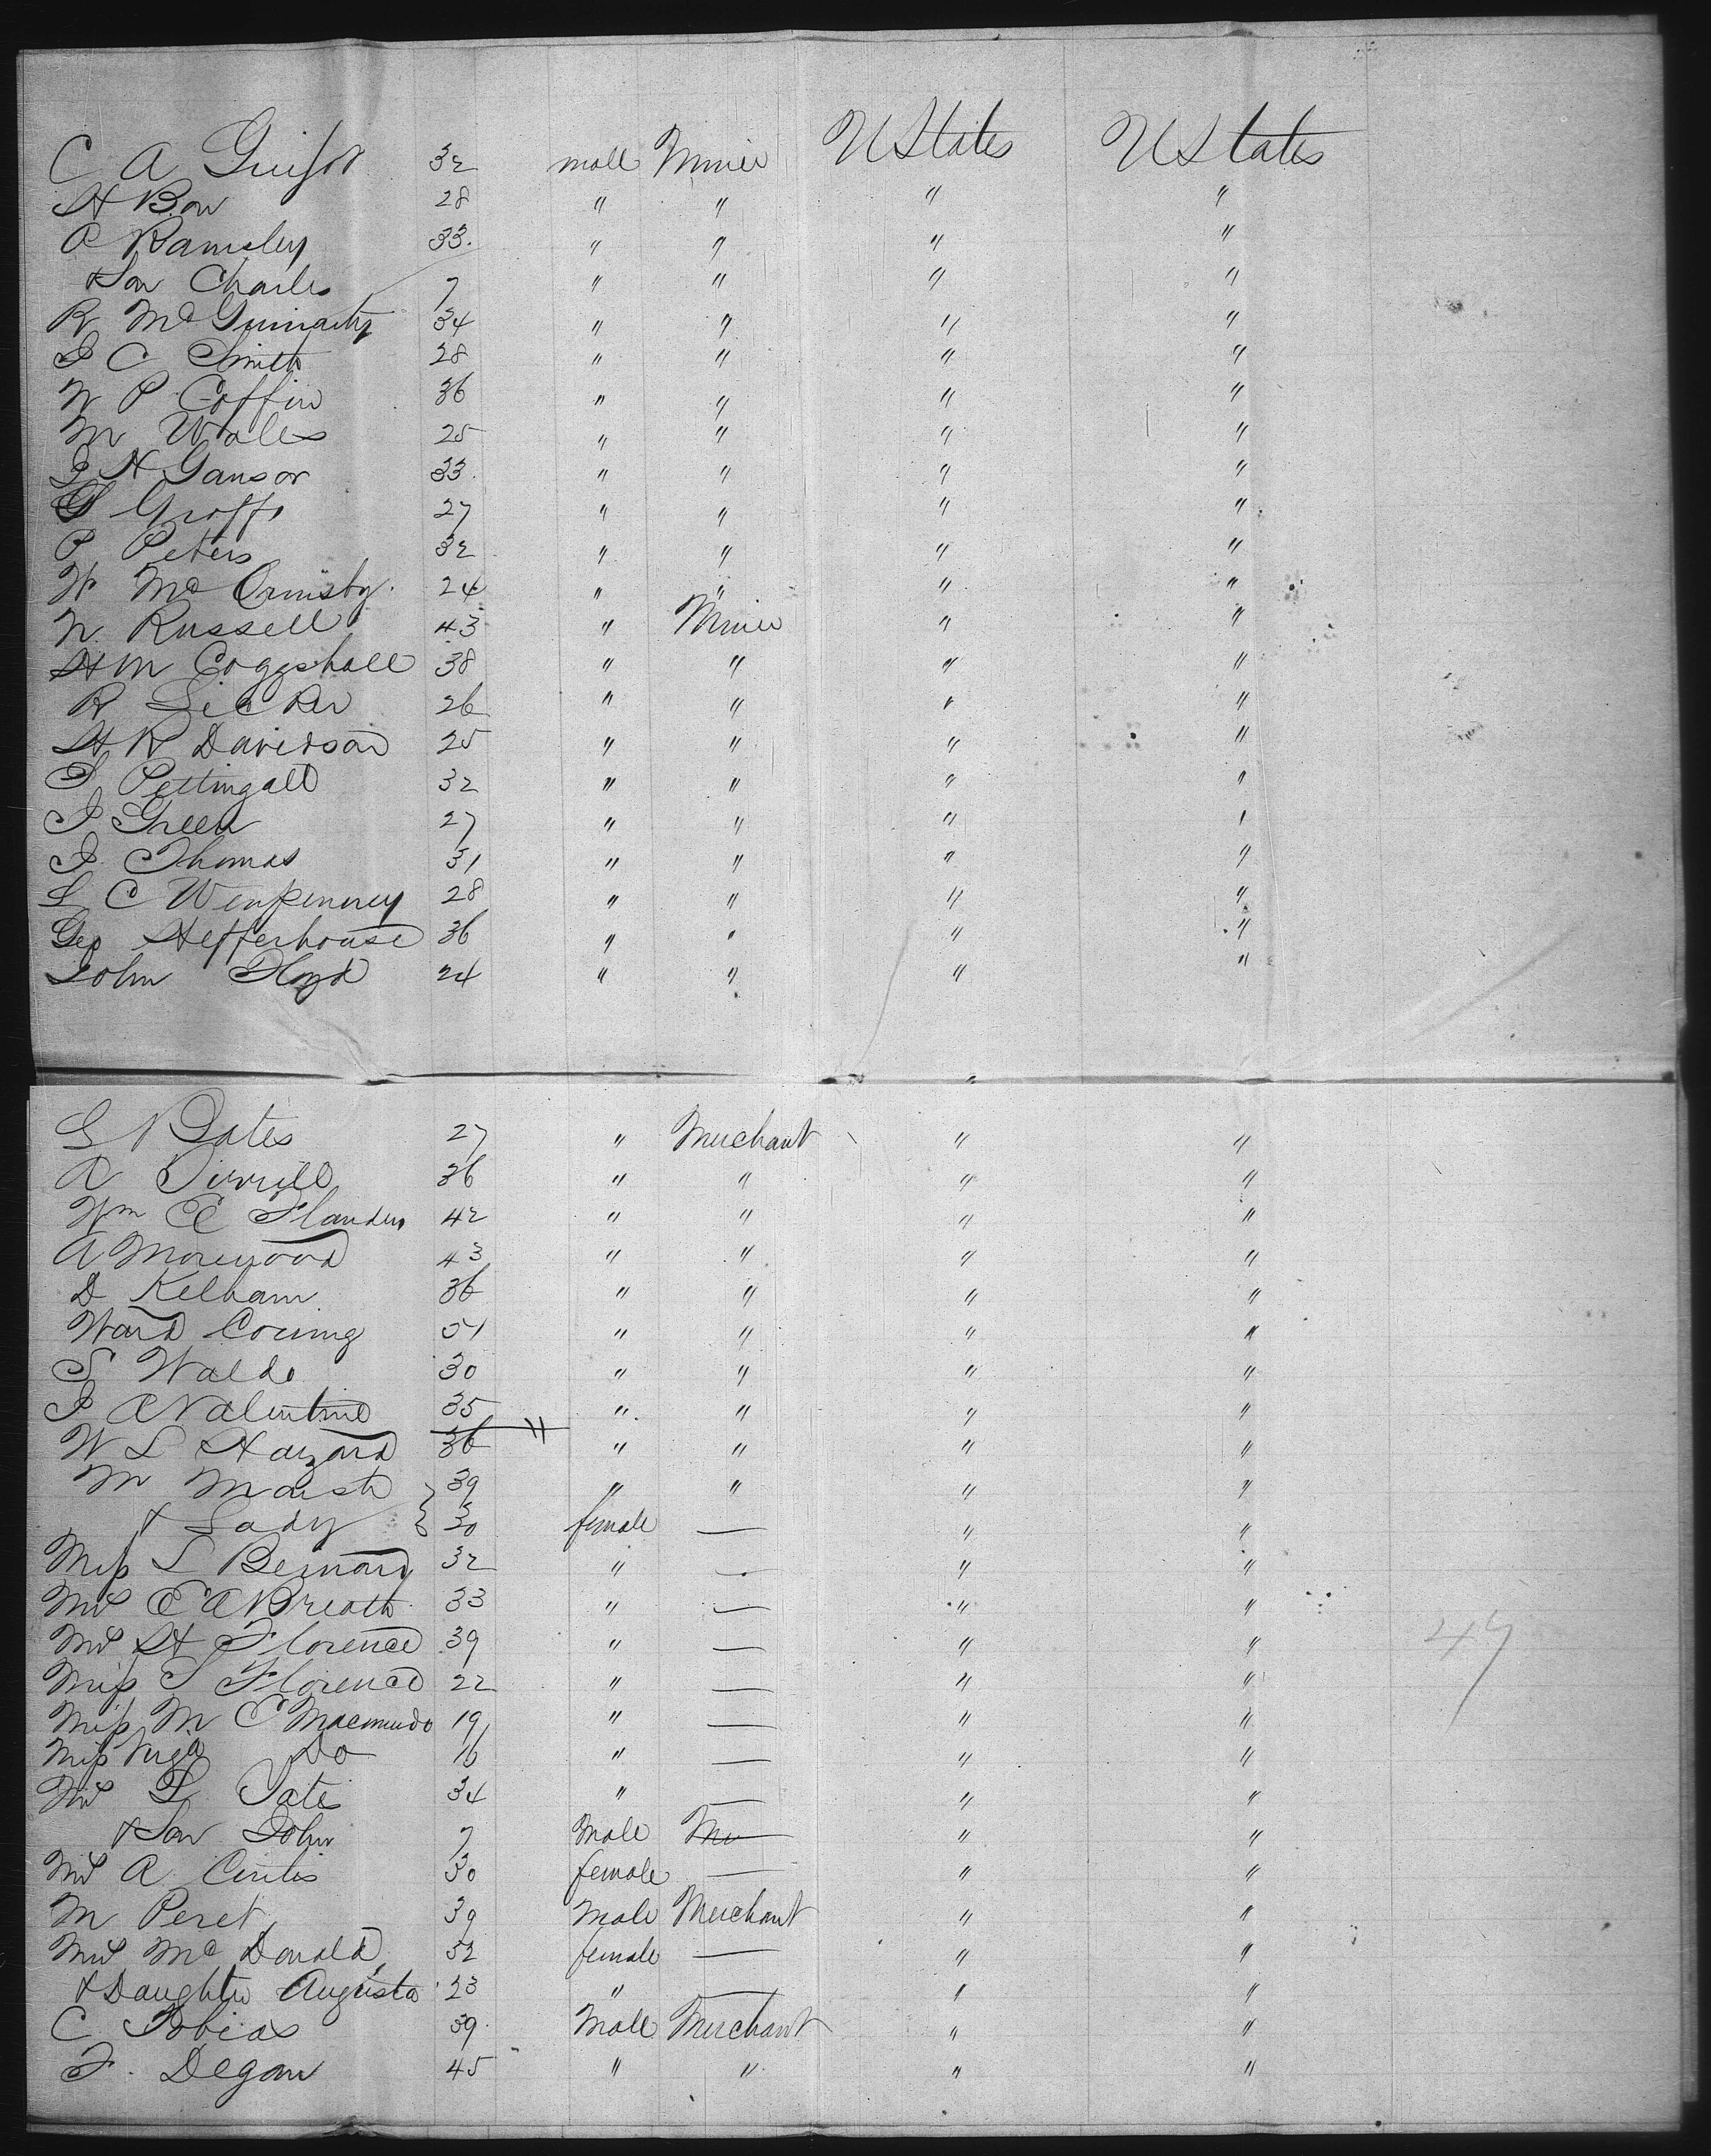 C A 32 male Miner UStates UStates
H Bow 28 " " " "
A Ramsley 33. " " " "
& Son Charles 7 " " " "
R 34 " " " "
J C Smith 28 " " " "
W P Coffin 36 " " " "
M Wales 25 " " " "
J H Ganson 33. " " " "
G Groff 27 " " " "
P Peters 32 " " " "
W Mc Ormsby. 24 " " " "
N. Russell 43 " Miner " "
H M Coggshall 38 " " " "
R 26 " " " "
H R Davidson 25 " " " "
S Pettingall 32 " " " "
J Green 27 " " " "
J Thomas 31 " " " "
L C Wenpenney 28 " " " "
Geo Hefferhouse 36 " " " "
John Floyd 24 " " " "
"
L Bates 27 " Merchant " "
A Tirrill 36 " " " "
Wm E Flanders 42 " " " "
A Morewood 43 " " " "
D Kelham 36 " " " "
Ward Coring 51 " " " "
S Waldo 30 " " " "
J A Valentine 35 " " " "
W L Hazard 36 " " " "
M Marsh 39 " " " "
& Lady 30 female — " "
Miss L Bernard 32 " — " "
Mrs E A Breath 33 " — " "
Mrs H Florence 39 " — " "
47
Miss S Florence 22 " — " "
Miss M E Macmurdo 19 " — " "
Miss Virga Do 16 " — " "
Mrs L Tate 34 " — " "
& Son John 7 Male — " "
Mrs A Curtis 30 female — " "
M Peret 39 Male Merchant " "
Mrs Mc Donald 52 female — " "
& Daughter Augusta 23 " — " "
C Tobias 39 Male Merchant " "
F. Degan 45 " " " "